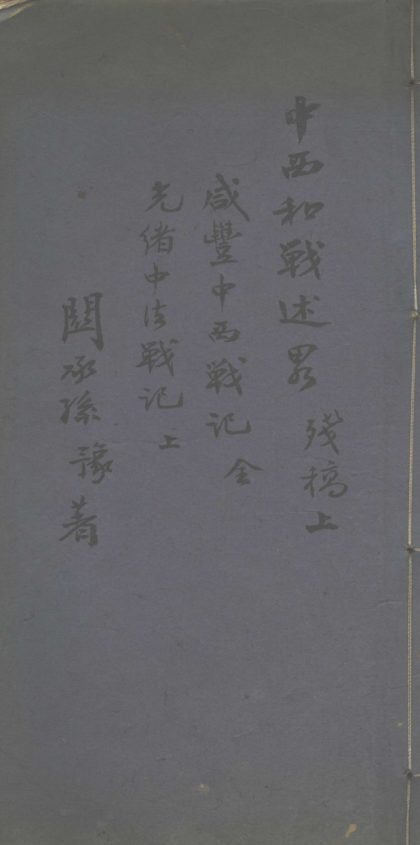 中西和戰述畧 殘稿上
咸豐中西戰记 全
光緒中法戰记 上
閻承孫豫著